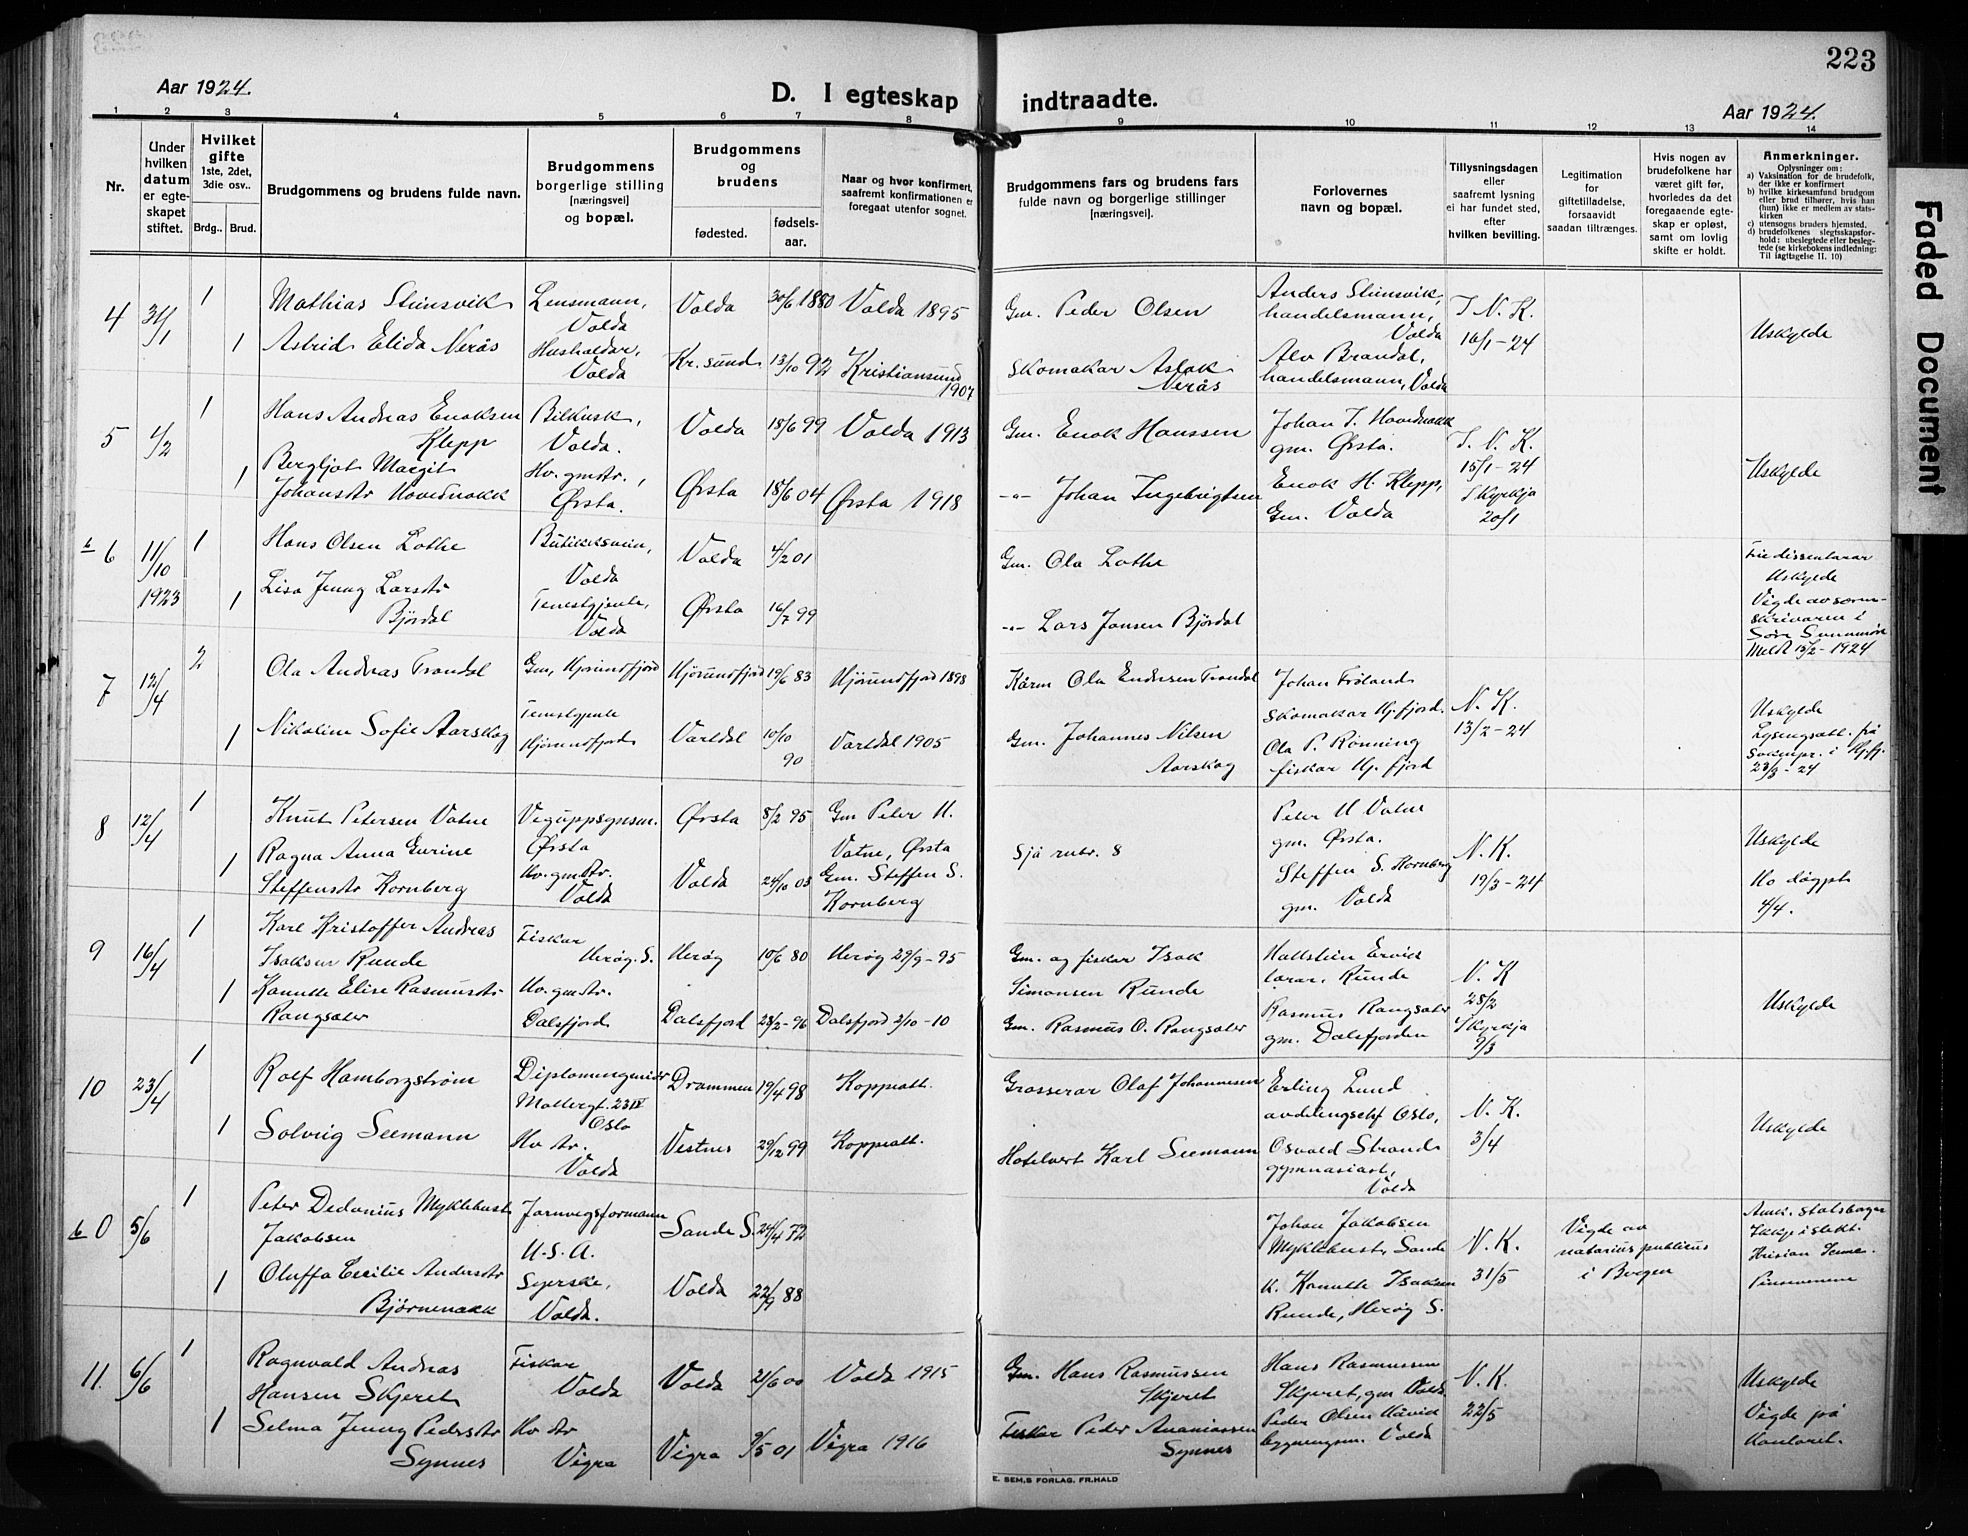 223
Aar 1924.
D. I egteskap indtraadte.
Aar 1924.
1 2 3 4 5 6 7 8 9 10 11 12 13 14
Nr.
Under hvilken datum er egteskapet stiftet.
Hvilket gifte 1ste, 2det, 3die osv..
Brdg.. Brud.
Brudgommens og brudens fulde navn.
Brudgommens borgerlige stilling [næringsvei] og bopæl.
Brudgommens og brudens
fødested.
fødselsaar.
Naar og hvor konfirmert, saafremt konfirmationen er foregaat utenfor sognet.
Brudgommens fars og brudens fars fulde navn og borgerlige stillinger [næringsvei].
Forlovernes navn og bopæl.
Tillysningsdagen eller saafremt lysning ei har fundet sted, efter hvilken bevilling.
Legitimation for giftetilladelse, forsaavidt saadan tiltrænges.
Hvis nogen av brudefolkene har været gift før, hvorledes da det foregaaende egteskap er opløst, samt om lovlig skifte er holdt.
Anmerkninger.
Oplysninger om:
a) Vaksination for de brudefolk, der ikke er konfirmert
b) hvilke kirkesamfund brudgom eller brud tilhører, hvis han (hun) ikke er medlem av statskirken
c) utensogns bruders hjemsted.
d) brudefolkenes slegtsskapsforhold: ubeslegtede eller beslegtede (se kirkebokens indledning: Til iagttagelse II. 10)
4 31/1 1 Mathias Steinsvik Lensmann, Volda Volda 30/6 1880 Volda 1895 Gm. Peder Olsen Anders Steinsvik, handelsmann, Volda I N. K. 16/1-24 Uskylde
1 Astrid Elida Nerås Husholdar, Volda Kr.sund 13/10 92 Kristiansund 1907 Skomakar Aslak Nerås Alv Brandal, handelsmann, Volda
5 4/2 1 Hans Andreas Enoksen Klepp Bilkusk, Volda. Volda 18/6 99 Volda 1913 Gm. Enok Hanssen Johan I. Hovednakk gm. Ørsta. I. N. K. 15/1-24 I kyrkja 20/1 Uskylde
1 Bergljot Margit Johansdtr Hovednakk Hv. gmdtr., Ørsta. Ørsta 18/6 04 Ørsta 1918 -"- Johan Ingebrigtsen Enok H. Klepp, Gm. Volda
b 6 11/10 1923 1 Hans Olsen Lothe Butikksvein, Volda Volda 4/2 01 Gm. Ola Lothe Friedissentarar Uskylde Vigde av sorenskrivaren i Søre Sunnmøre Meldt 15/2-1924
1 Lisa Jenny Larsdtr Bjørdal Tenestgjente, Volda Ørsta 16/7 99 -"- Lars Jonsen Bjørdal
7 12/4 2 Ola Andreas Trandal Gm, Hjørundfjord Hjørundfjord 19/6 83 Hjørundfjord 1898 Kårm Ola Endresen Trandal Johan Frøland skomakar Hj.fjord. N. K. 13/2-24 Uskylde Lysingsatt. frå soknepr. i Hj.fj. 23/3-24
1 Nikoline Sofie Aarskog Tenestgjente Hjørundfjord Vartdal 10/10 90 Vartdal 1905 Gm. Johannes Nilsen Aarskog Ola P. Rønning fiskar Hj.fjord
8 12/4 1 Knut Petersen Vatne Veguppsynsm. Ørsta Ørsta 8/2 95 Gm Peter H. Vatne, Ørsta Sjå rubr. 8 Peter H Vatne gm. Ørsta. N. K. 19/3-24 Uskylde
1 Ragna Anna Gurine Steffensdtr Kornberg Hv. gmdtr. Volda Volda 24/10 03 Gm. Steffen S. Kornberg Steffen S. Kornberg gm. Volda Ho døypt 4/4.
9 16/4 1 Karl Kristoffer Andreas Isaksen Runde Fiskar Herøy. S. Herøy 10/6 80 Herøy 29/9-95 Gm. og fiskar Isak Simonsen Runde Hallstein Ervik lærar, Runde N. K 28/2 I kyrkja 9/3 Uskylde
1 Hanette Elise Rasmusdtr Rangsæter Hv. gmdtr. Dalsfjord Dalsfjord 23/2-96 Dalsfjord 2/10-10 Gm. Rasmus O. Rangsæter Rasmus Rangsæter gm. Dalsfjorden
10 23/4 1 Rolf Hamborgstrøm Diplomingeniør Møllergt. 23 IV Oslo Drammen 19/4 98 Koppeatt. Grosserar Olaf Johannesen Erling Lund avdelingschf Oslo, N. K. 3/4 Uskylde
1 Solveig Seemann Hv dtr. Volda Vestnes 29/12 99 Koppeatt. Hotelvert Karl Seemann Osvald Strand gymnasiast, Volda
b 0 5/6 1 Peter Dedanius Myklebust Jakobsen Jarnvegsformann U.S.A. Sande S. 24/4 72 Johan Jakobsen Myklebust, Sande N. K. 31/5 Vigde av notarius publicus i Bergen Amk. statsborgar
1 Oluffa Cecilie Andersdtr Bjørnenakk Syerske, Volda. Volda 22/9 88 K. Hanette Isaksen Runde, Herøy S.
11. 6/6 1 Ragnvald Andreas Hansen Skjeret Fiskar Volda Volda 21/6 00 Volda 1915 Gm. Hans Rasmussen Skjeret Hans Rasmussen Skjeret, gm Volda N. K. 22/5 Uskylde
1 Selma Jenny Pedersdtr Synnes Hv dtr Vigra Vigra 9/5 01 Vigra 1916 Fiskar Peder Ananiassen Synnes Peder Olsen Håvik bygningsm. Volda Vigde på kontoret.
E. SEM,S FORLAG, FR.HALD
Faded Document